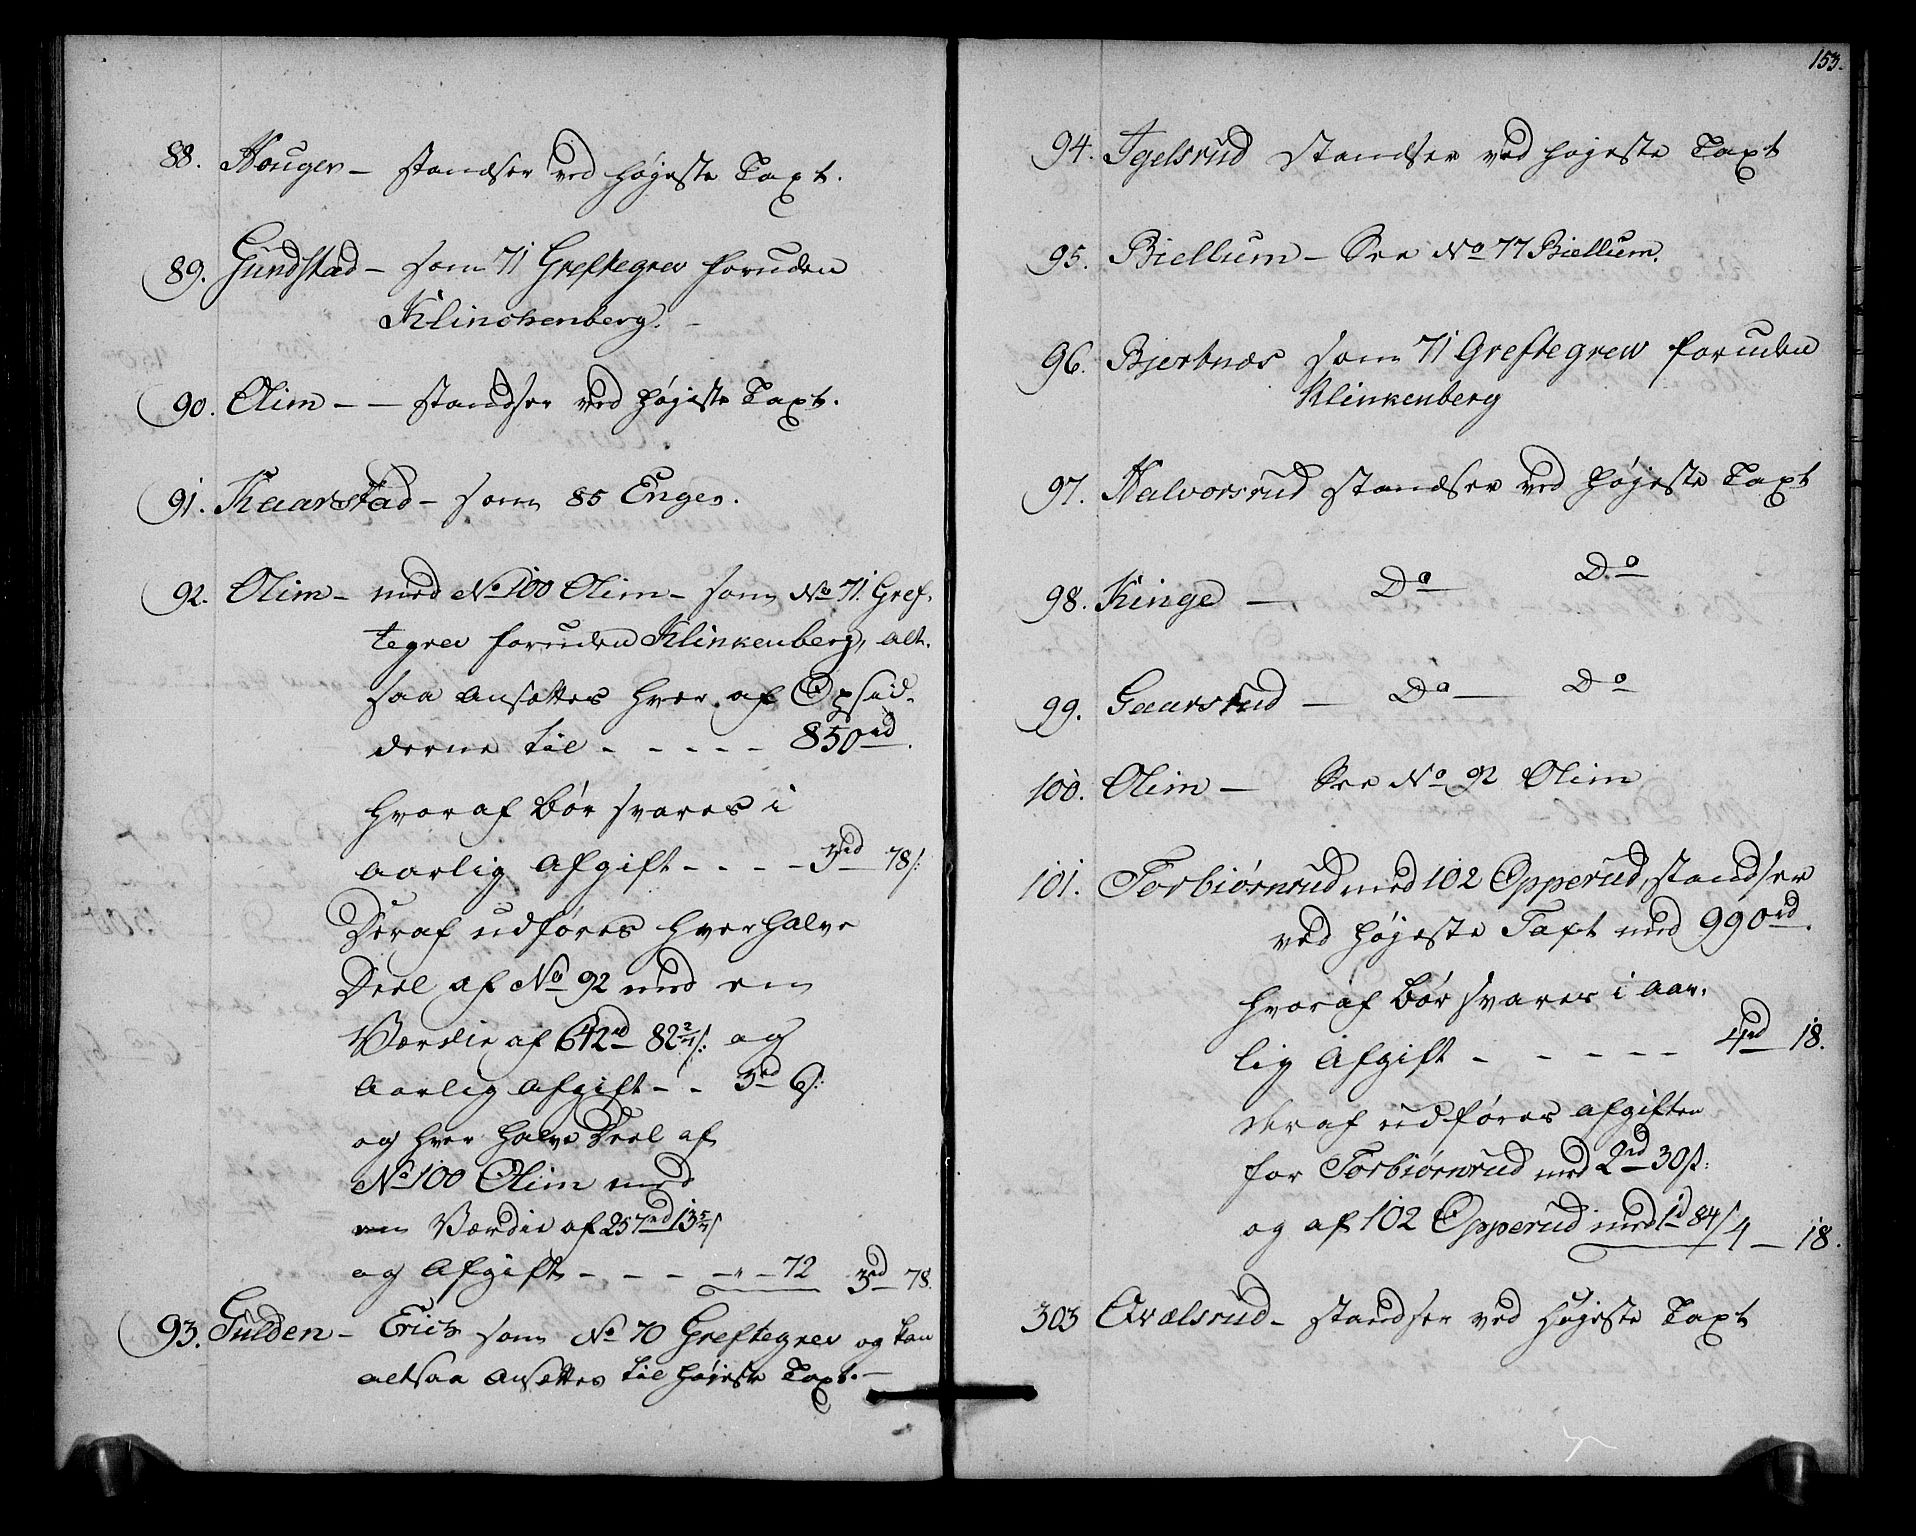 88. Houger – standser ved højeste Taxt.
89. Gundstad – som 71 Greftegrev foruden
Klinchenberg. –
90. Olim – – standser ved højeste Taxt.
91. Kaarstad – som 85 Enger.
92. Olim – med No 100 Olim – som No 71. Gref-
tegrev foruden Klinkenberg, alt-
saa ansættes hver af Opsid-
derne til - - - - - 850rd.
hvoraf bør svares i
aarlig Afgift - - - - 3rd 78/:
Deraf udføres hver halve
Deel af No 92 med en
Værdie af 642rd 82 2/7/: og
Aarlig Afgift - - 3rd 6/:
og hver halve Deel af
No 100 Olim med
en Værdie af 257rd 13 5/7/
og Afgift - - - - " - 72 3rd 78.
93. Gulden – Erich som No 70 Greftegrev og kan
altsaa ansættes til højeste Taxt. –
153.
94. Igelsrud standser ved højeste Taxt
95. Biellum – See No 77 Biellum.
96. Bjertnæs som 71 Greftegrev foruden
Klinkenberg
97. Halvorsrud standser ved højeste Taxt
98. Kinge – Do – Do
99. Gaarsrud – Do – Do
100. Olim – See No 92 Olim
101. Torbiørnrud med 102 Opperud, standser
ved højeste Taxt med 990rd.
hvoraf bør svares i aar-
lig Afgift - - - - - 4rd 18.
deraf udføres afgiften
for Torbiørnrud med 2rd 30/:
og af 102 Opperud med 1rd 84/ 4 – 18.
303 Qvælsrud – standser ved højeste Taxt